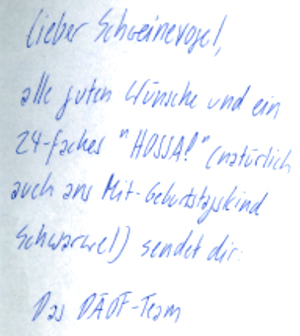 Lieber Schweinevogel,
alle guten Wünsche und ein
24-faches "HOSSA!" (natürlich
auch ans Mit-Geburtstagskind
Schwarwel) sendet dir:
Das DÄOF-Team